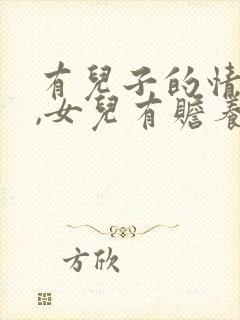 有兒子的情
,女兒有贍養
方欣